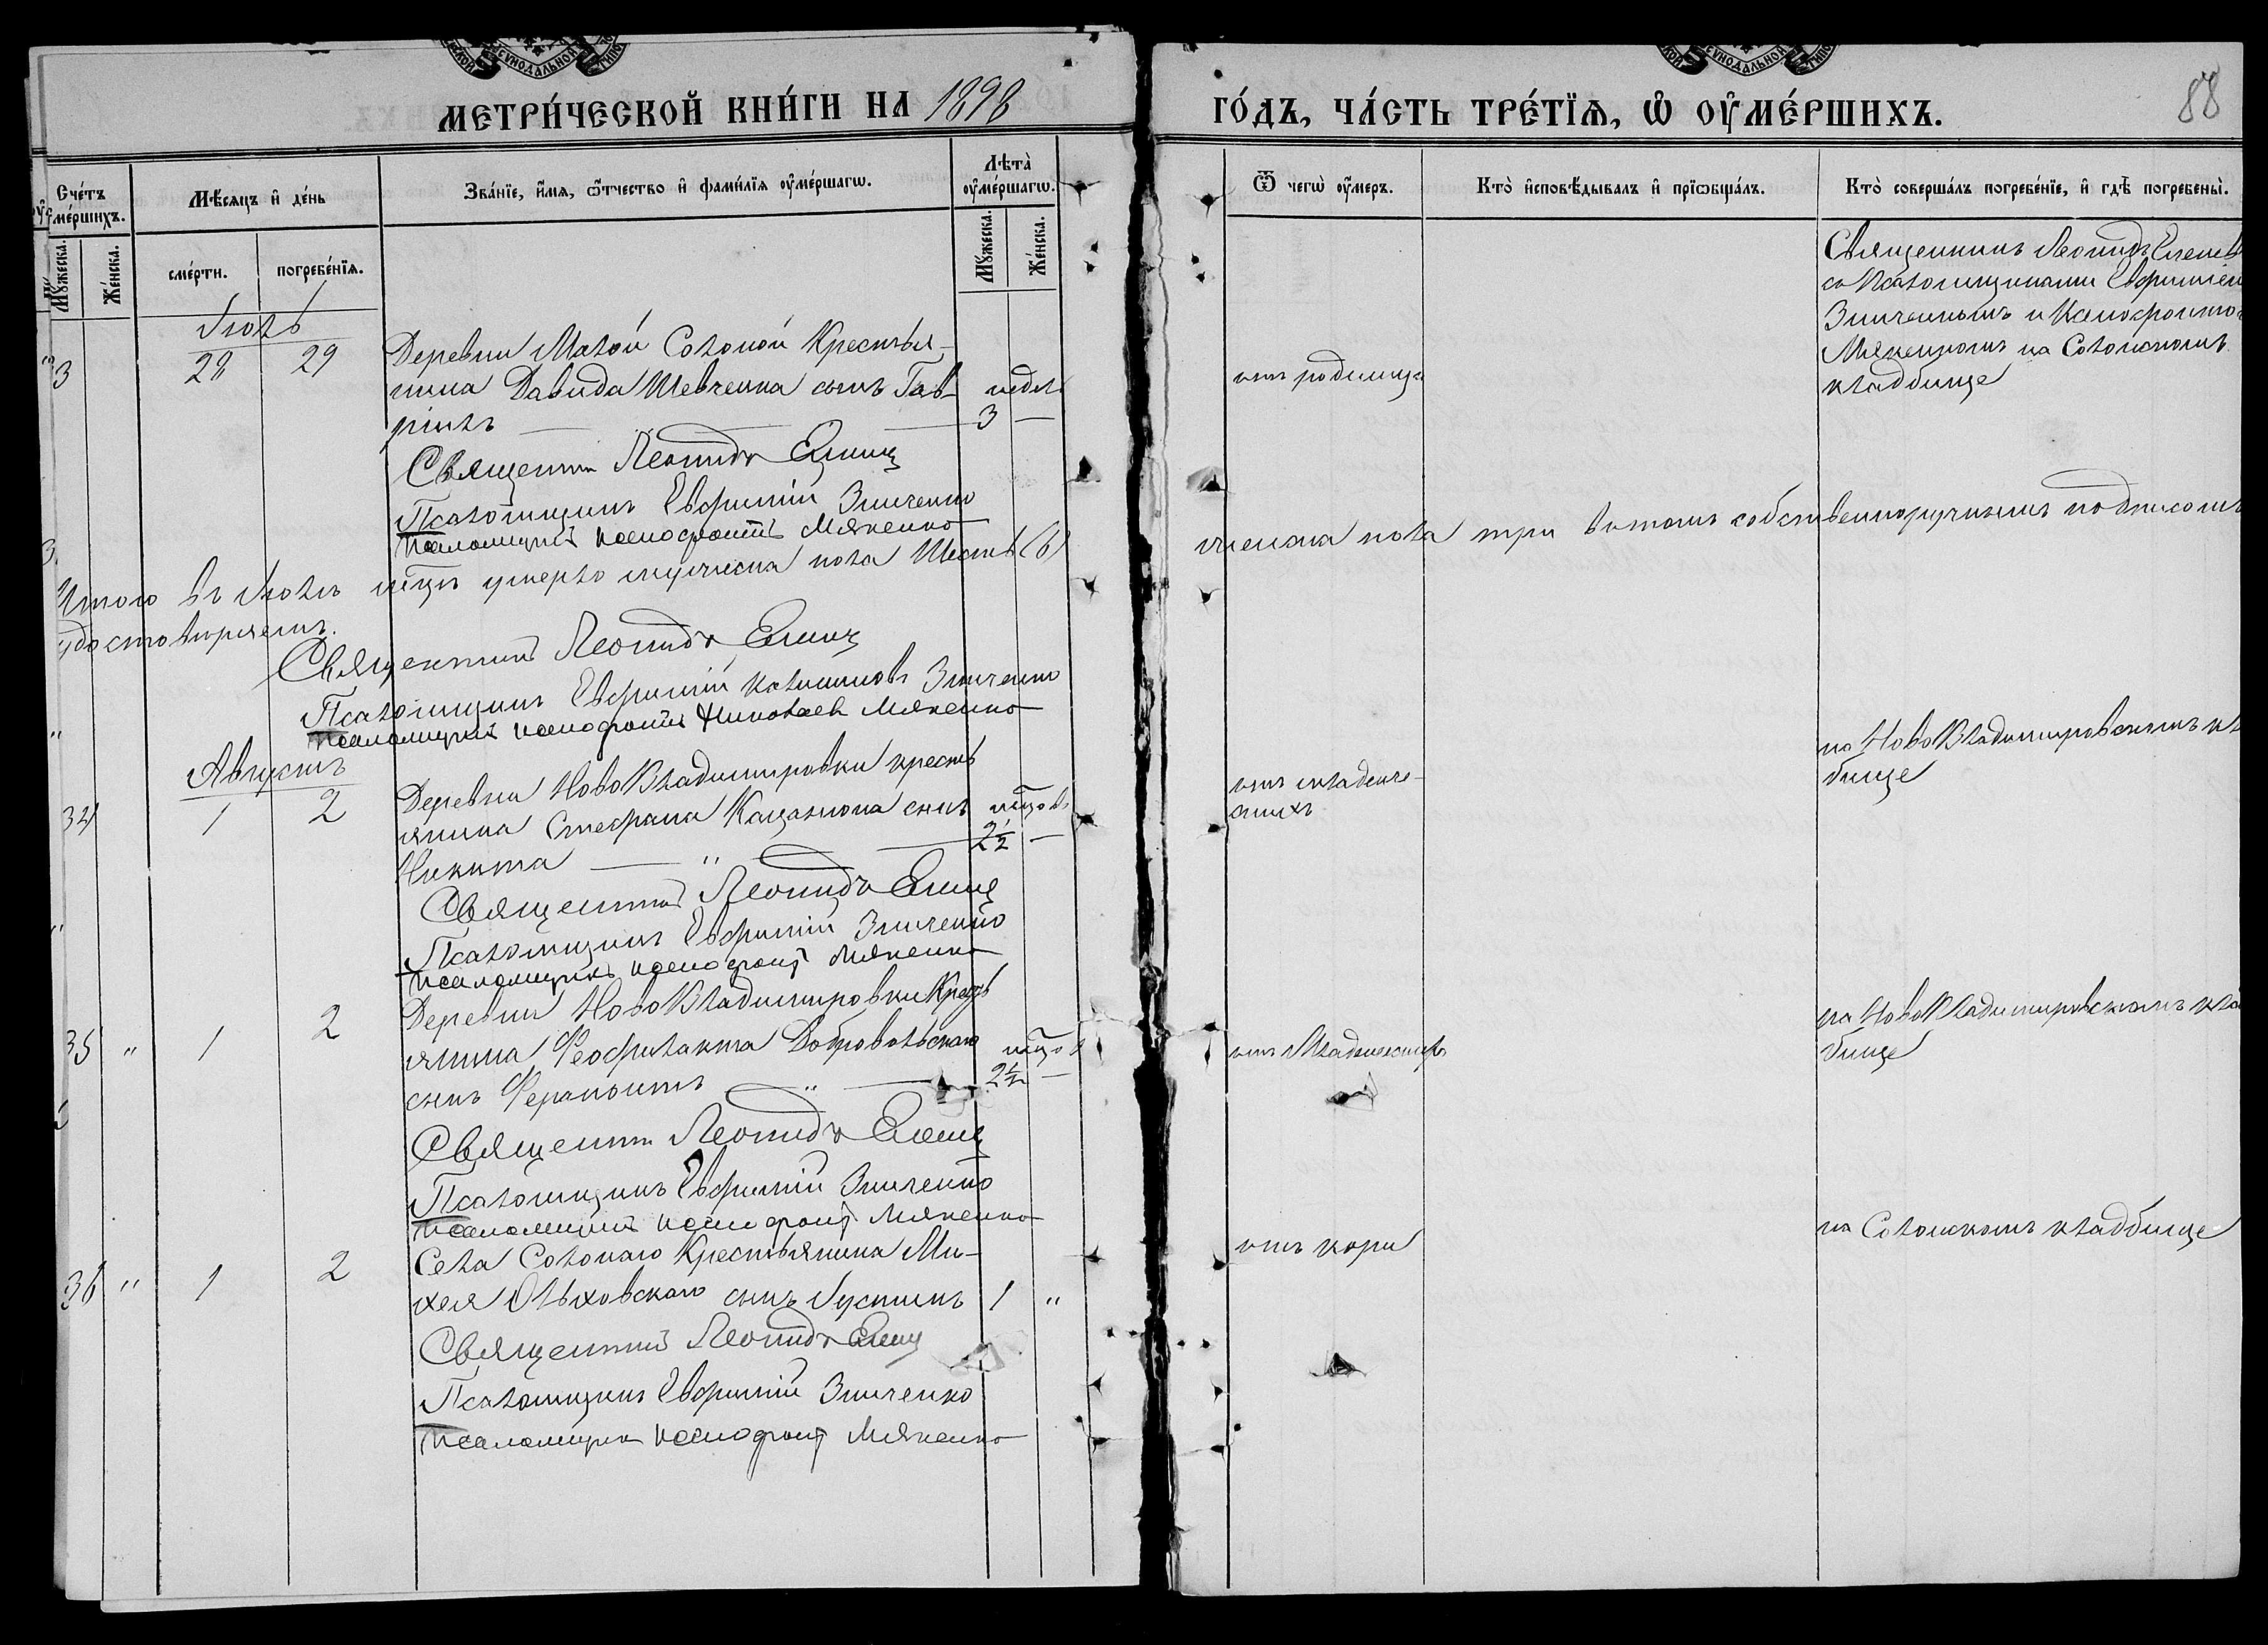 МЕТРИ́ЧЕСКОЙ КНИ́ГИ НА 1898
ГО́ДЪ, ЧА́СТЬ ТРЕ́ТЇѦ, Ѽ ОУ҆МЕ́РШИХЪ.
88
Сче́тъ оу҆ме́ршихъ.
Мѣ́сѧцъ и҆ де́нь
Зва́нїе, и҆́мѧ, ѻ҆́тчество и҆ фами́лїѧ оу҆ме́ршагѡ.
Лѣта̀ оу҆ме́ршагѡ.
Ѿ чегѡ̀ оу҆́меръ.
Кто̀ и҆сповѣ́дывалъ и҆ прїѡбща́лъ.
Кто̀ соверша́лъ погребе́нїе, и҆ гдѣ̀ погребены̀.
Мꙋ́жеска.
Же́нска.
сме́рти.
погребе́нїѧ.
Мꙋ́жеска.
Же́нска.
Іюль
28 29
Деревни Малой Солоной Крестья-
нина Давида Шевченка сынъ Гав-
ріилъ
недѣл
3 —
отъ родимца
Священникъ Леонидъ
со Псаломщиками Евфиміем
Зинченкомъ и Ксенофонто
Мякенкомъ на Солонскомъ
кладбище
Священник Леонидъ Елинц
Псаломщикъ Евфимій Зинченко
Псаломщикъ Ксенофонтъ Мякенко
Итого въ Іюлѣ мѣцѣ умерло мужеска пола Шесть (6)
женска пола три въ томъ собственноручнымъ подписомъ
удостовѣряемъ.
Священникъ Леонидъ Елинц
Псаломщикъ Евфимій Зинченко
Псаломщикъ Ксенофонтъ Николаев Мякенко
Августъ
34 1 2
Деревни НовоВладимировки кресть
янина Стефана сынъ
Никита
мѣцовъ
2½ —
отъ младенче-
скихъ
на НовоВладимировскомъ кл
бище
Священникъ Леонидъ Елинц
Псаломщикъ Евфимій Зинченко
Псаломщикъ Ксенофонт Мякенко
35 " 1 2
Деревни НовоВладимировки Кресть
янина Феофилакта Добровольскаго
сынъ Ферапонтъ "
мѣцов
2½ —
отъ Младенческ
на НовоВладимировскомъ кла
бище
Священник Леонидъ Елинц
Псаломщикъ Евфимій Зинченко
Псаломщикъ Ксенофонт Мякенко
36 " 1 2
Села Солонаго Крестьянина Ми-
хея Ольховскаго сынъ Іустинъ 1 "
отъ кори
на Солонскомъ кладбище
Священникъ Леонидъ Елинц
Псаломщикъ Евфимій Зинченко
Псаломщикъ Ксенофонт Мякенко